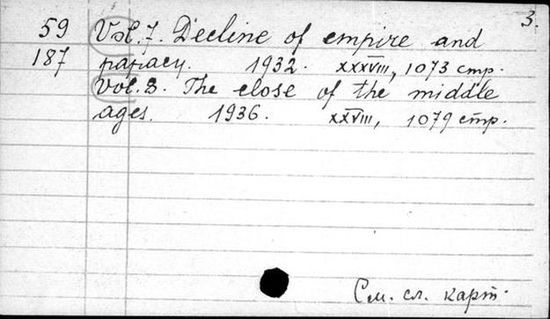 3.
59 Vol. 7. Decline of empire and
187 papacy. 1932. XXXVIII, 1073 стр.
Vol. 8. The close of the middle
ages. 1936. XXVIII, 1079 стр.
См. сл. карт.